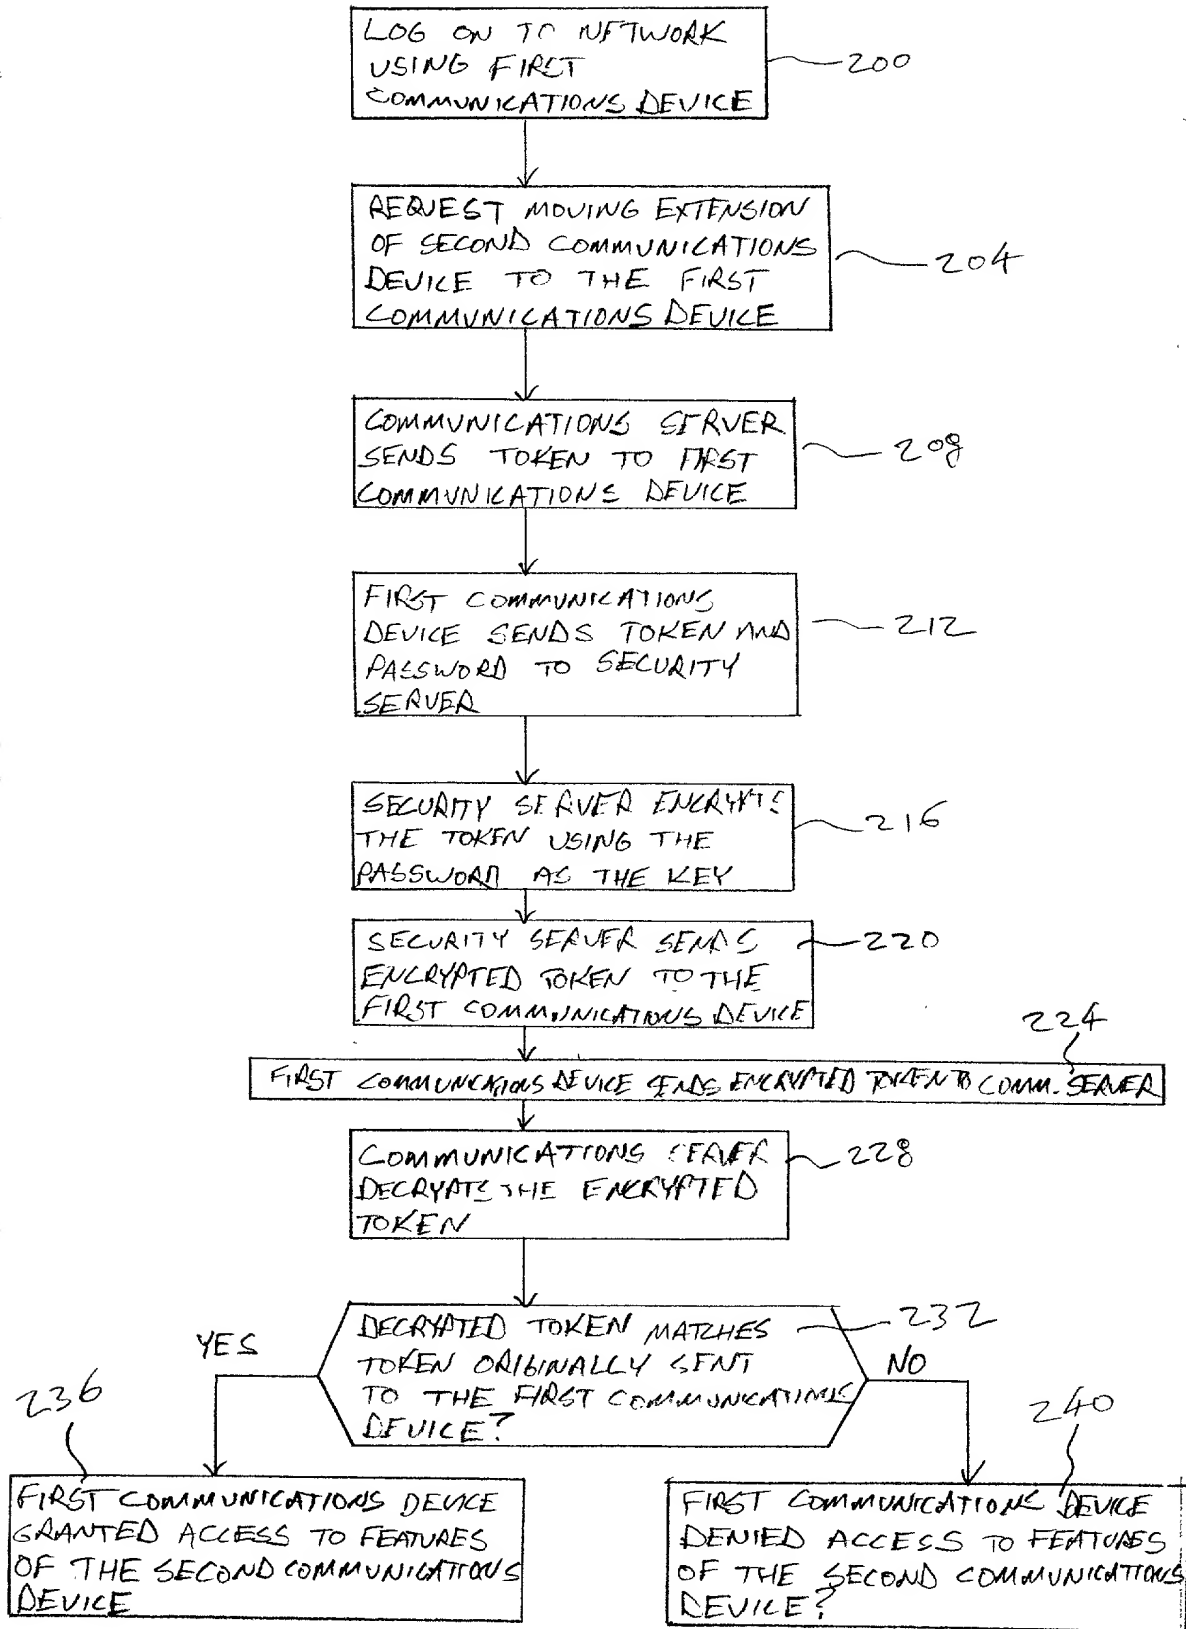 LOG ON TO NETWORK
USING FIRST
COMMUNICATIONS DEVICE
200
REQUEST MOVING EXTENSION
OF SECOND COMMUNICATIONS
DEVICE TO THE FIRST
COMMUNICATIONS DEVICE
204
COMMUNICATIONS SERVER
SENDS TOKEN TO FIRST
COMMUNICATIONS DEVICE
208
FIRST COMMUNICATIONS
DEVICE SENDS TOKEN AND
PASSWORD TO SECURITY
SERVER
212
SECURITY SERVER ENCRYPTS
THE TOKEN USING THE
PASSWORD AS THE KEY
216
SECURITY SERVER SENDS
ENCRYPTED TOKEN TO THE
FIRST COMMUNICATIONS DEVICE
220
224
FIRST COMMUNICATIONS DEVICE SENDS ENCRYPTED TOKEN TO COMM. SERVER
COMMUNICATIONS SERVER
DECRYPTS THE ENCRYPTED
TOKEN
228
DECRYPTED TOKEN MATCHES
TOKEN ORIGINALLY SENT
TO THE FIRST COMMUNICATIONS
DEVICE?
232
YES
NO
236
FIRST COMMUNICATIONS DEVICE
GRANTED ACCESS TO FEATURES
OF THE SECOND COMMUNICATIONS
DEVICE
240
FIRST COMMUNICATIONS DEVICE
DENIED ACCESS TO FEATURES
OF THE SECOND COMMUNICATIONS
DEVICE?